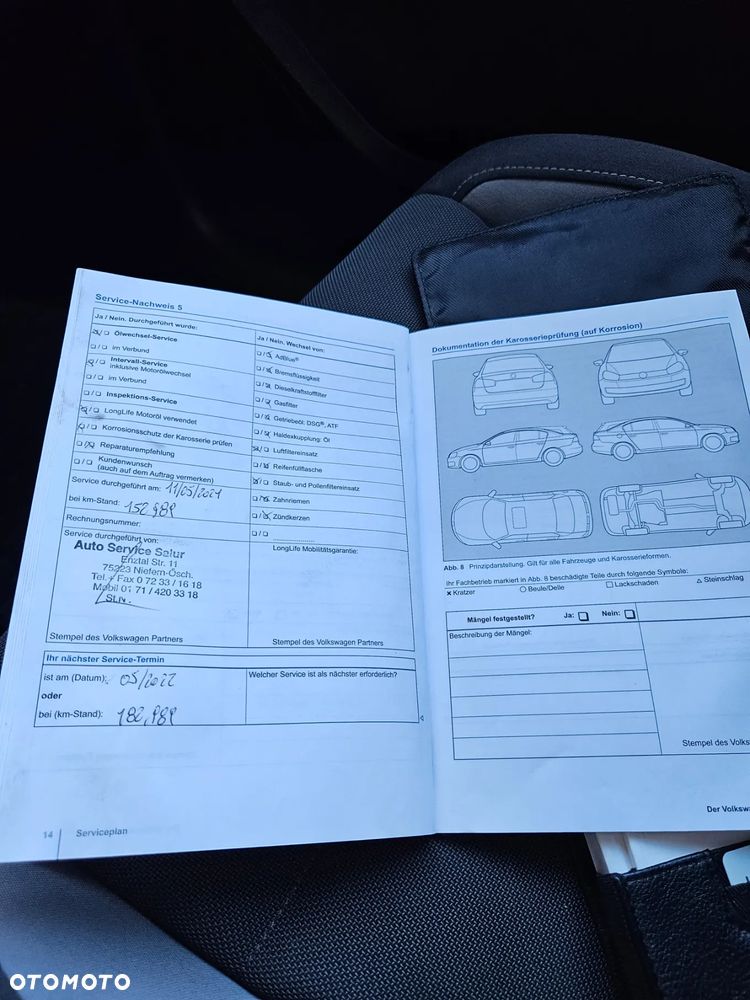 Service-Nachweis 5
Ja / Nein. Durchgeführt wurde:
Ölwechsel-Service
im Verbund
Intervall-Service
inklusive Motorölwechsel
im Verbund
Inspektions-Service
LongLife Motoröl verwendet
Korrosionsschutz der Karosserie prüfen
Reparaturempfehlung
Kundenwunsch
(auch auf dem Auftrag vermerken)
Service durchgeführt am: 11/05/2021
bei km-Stand: 152,989
Rechnungsnummer:
Service durchgeführt von:
Auto Service Salur
Enztal Str. 11
75223 Niefern-Ösch.
Tel. + Fax 0 72 33 / 16 18
Mobil 01 71 / 420 33 18
Stempel des Volkswagen Partners
Ja / Nein. Wechsel von:
AdBlue®
Bremsflüssigkeit
Dieselkraftstofffilter
Gasfilter
Getriebeöl: DSG®, ATF
Haldexkupplung: Öl
Luftfiltereinsatz
Reifenfüllflasche
Staub- und Pollenfiltereinsatz
Zahnriemen
Zündkerzen
LongLife Mobilitätsgarantie:
Stempel des Volkswagen Partners
Ihr nächster Service-Termin
ist am (Datum): 05/2022
oder
bei (km-Stand): 182,989
Welcher Service ist als nächster erforderlich?
14 Serviceplan
Dokumentation der Karosserieprüfung (auf Korrosion)
Abb. 8 Prinzipdarstellung. Gilt für alle Fahrzeuge und Karosserieformen.
Ihr Fachbetrieb markiert in Abb. 8 beschädigte Teile durch folgende Symbole:
× Kratzer ○ Beule/Delle □ Lackschaden △ Steinschlag
Mängel festgestellt? Ja: Nein:
Beschreibung der Mängel:
Stempel des Volks
Der Volkswa
OTOMOTO